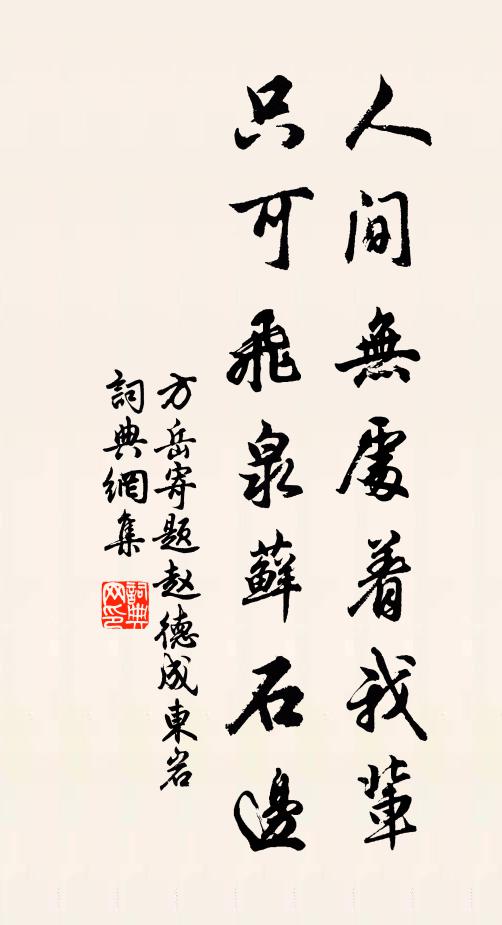 人間無處着我輩
只可飛泉蘚石邊
方岳寄題赵德成東岩
詞典網集
詞典
网印